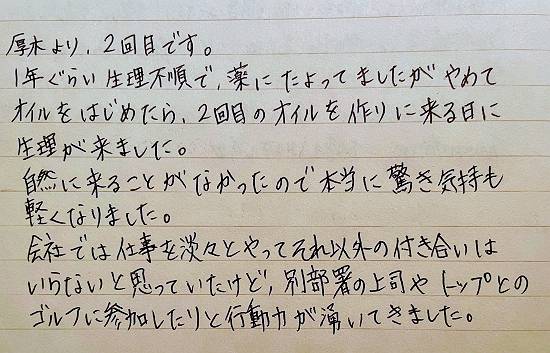 厚木より、2回目です。
1年ぐらい生理不順で、薬にたよってましたがやめて
オイルをはじめたら、2回目のオイルを作りに来る日に
生理が来ました。
自然に来ることがなかったので本当に驚き気持も
軽くなりました。
会社では仕事を淡々とやってそれ以外の付き合いは
いらないと思っていたけど、別部署の上司やトップとの
ゴルフに参加したりと行動力が湧いてきました。